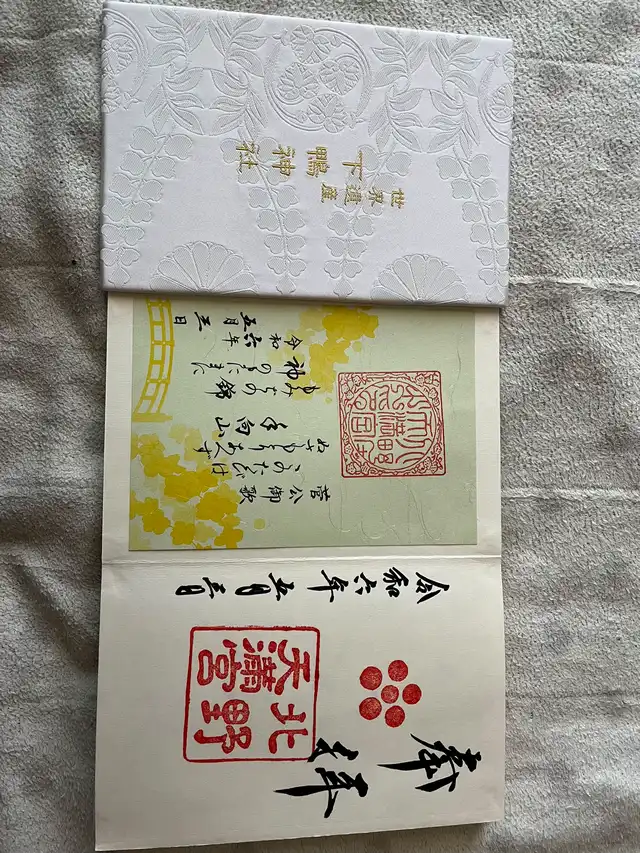 世界遺産
下鴨神社
菅公御歌
このたびは
ぬさもとりあへず
手向山
もみぢの錦
神のまにまに
令和六年
五月三日
奉拝
北野
天満宮
令和六年五月三日